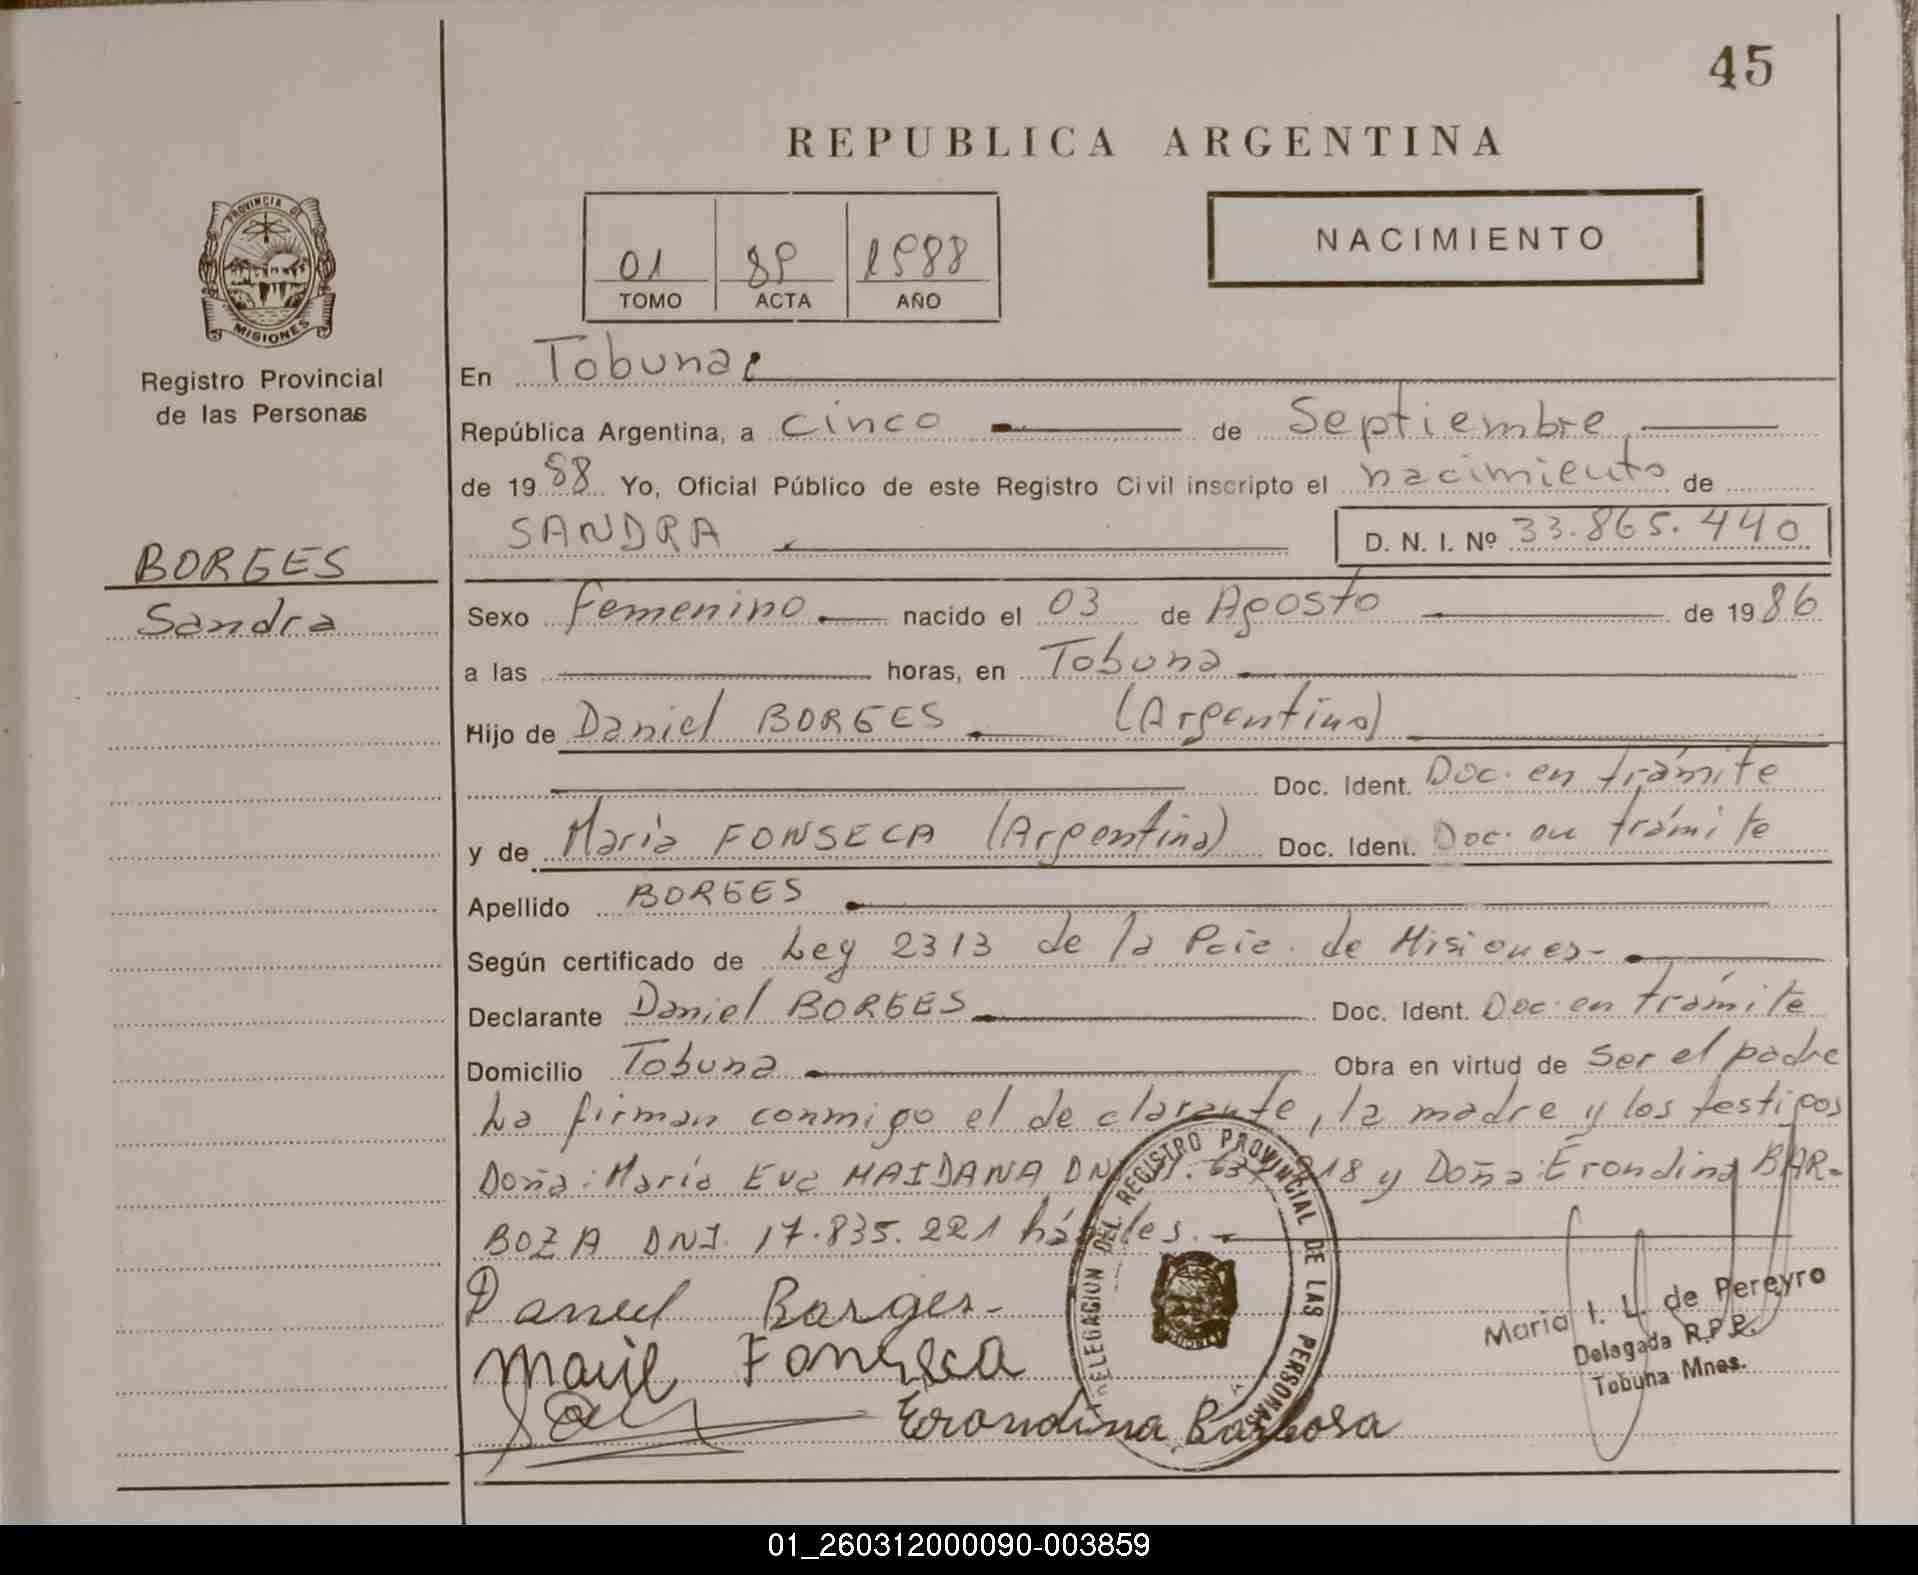 45
REPUBLICA ARGENTINA
PROVINCIA DE
MISIONES
Registro Provincial
de las Personas
BORGES
Sandra
01 89 1988
TOMO ACTA AÑO
NACIMIENTO
En Tobuna
República Argentina, a cinco de Septiembre
de 1988 Yo, Oficial Público de este Registro Civil inscripto el nacimiento de
SANDRA D. N. I. Nº 33.865.440
Sexo femenino nacido el 03 de Agosto de 1986
a las horas, en Tobuna
Hijo de Daniel BORGES (Argentino)
Doc. Ident. Doc. en trámite
y de María FONSECA (Argentina) Doc. Ident. Doc. en trámite
Apellido BORGES
Según certificado de Ley 2313 de la Pcia. de Misiones-
Declarante Daniel BORGES Doc. Ident. Doc. en trámite
Domicilio Tobuna Obra en virtud de ser el padre
La firman conmigo el declarante, la madre y los testigos
Doña: María Eva MAIDANA y Doña: Erondina BAR-
BOZA DNI. 17.835.221 hábiles.
Daniel Borges
Fonseca
Erondina Barbosa
DELEGACION DEL REGISTRO PROVINCIAL DE LAS PERSONAS
Maria I. L. de Pereyro
Delegada R.P.P.
Tobuna Mnes.
01_260312000090-003859